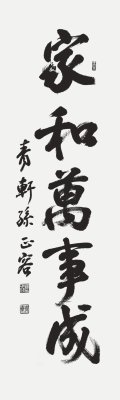 家和萬事成
青軒 孫正容